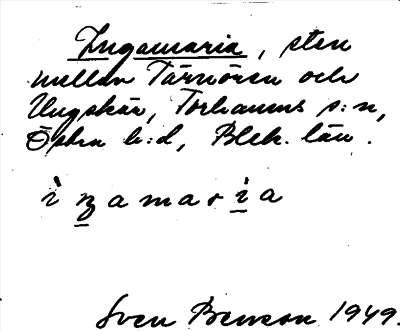 Ingamaria, sten
mellan Tärnören och
Ungskär, Torhamns s:n,
Östra h:d, Blek. län.
ìŋamaria
Sven Benson 1949.